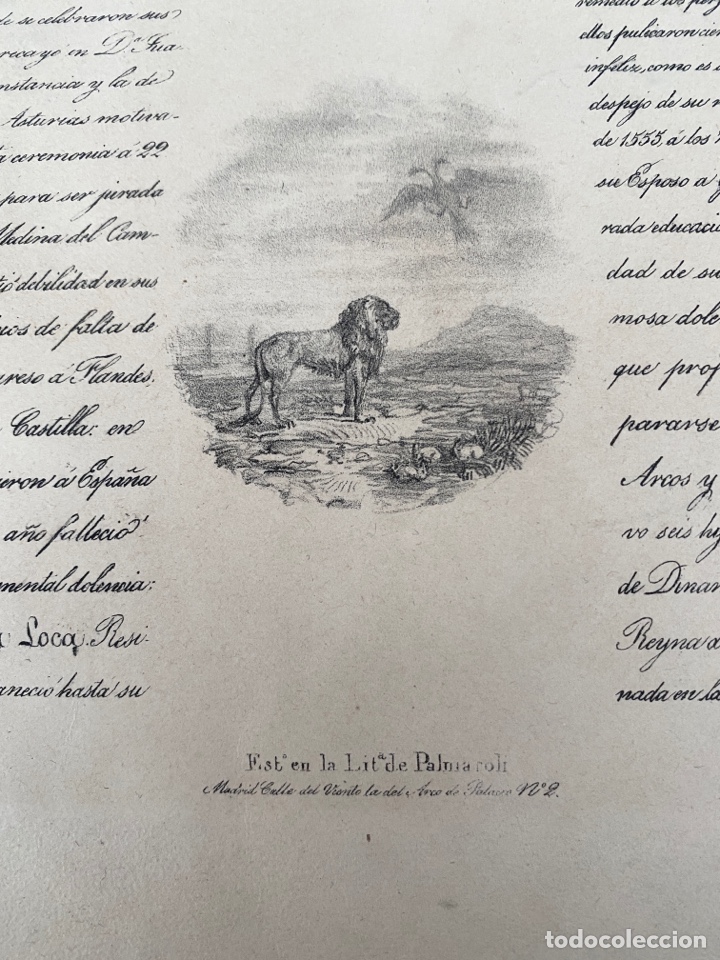 de se celebraron sus
recayó en D.ª Jua-
nstancia y la de
Asturias motiva-
a ceremonia á 22
para ser jurada
Medina del Cam-
tió debilidad en sus
ios de falta de
reso á Flandes,
Castilla: en
ieron á España
año falleció
mental dolencia:
a Loca. Resi-
aneció hasta su
remedio á los
ellos publicaron
infeliz, como es
despejo de su
de 1555 á los
su Esposo a
rada educació
dad de su
mosa dole
que prop
pararse
Arcos y
vo seis hij
de Dinam
Reyna d
nada en la
Est.º en la Lit.ª de Palmaroli
Madrid Calle del Viento la del Arco de Palacio Nº 2.
todocoleccion